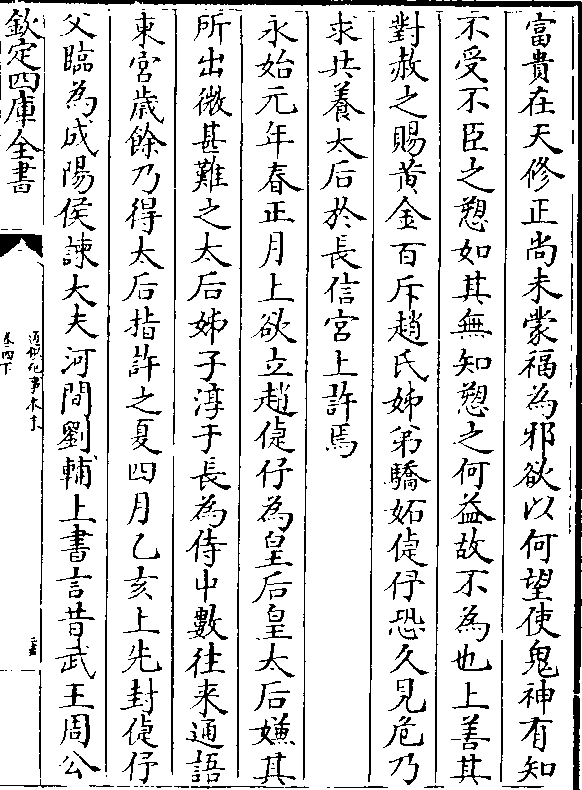 富貴在天修正尚未蒙福為邪欲以何望使鬼神有知
不受不臣之愬如其無知愬之何益故不為也上善其
對赦之賜黄金百斤趙氏姊弟驕妬倢伃恐久見危乃
求共養太后於長信宮上許焉
永始元年春正月上欲立趙倢伃為皇后皇太后嫌其
所出微甚難之太后姊子淳于長為侍中數往来通語
東宮歳餘乃得太后指許之夏四月乙亥上先封倢伃
父臨為成陽侯諫大夫河間劉輔上書言昔武王周公
欽定四庫全書
通鑑紀事本末
卷四下